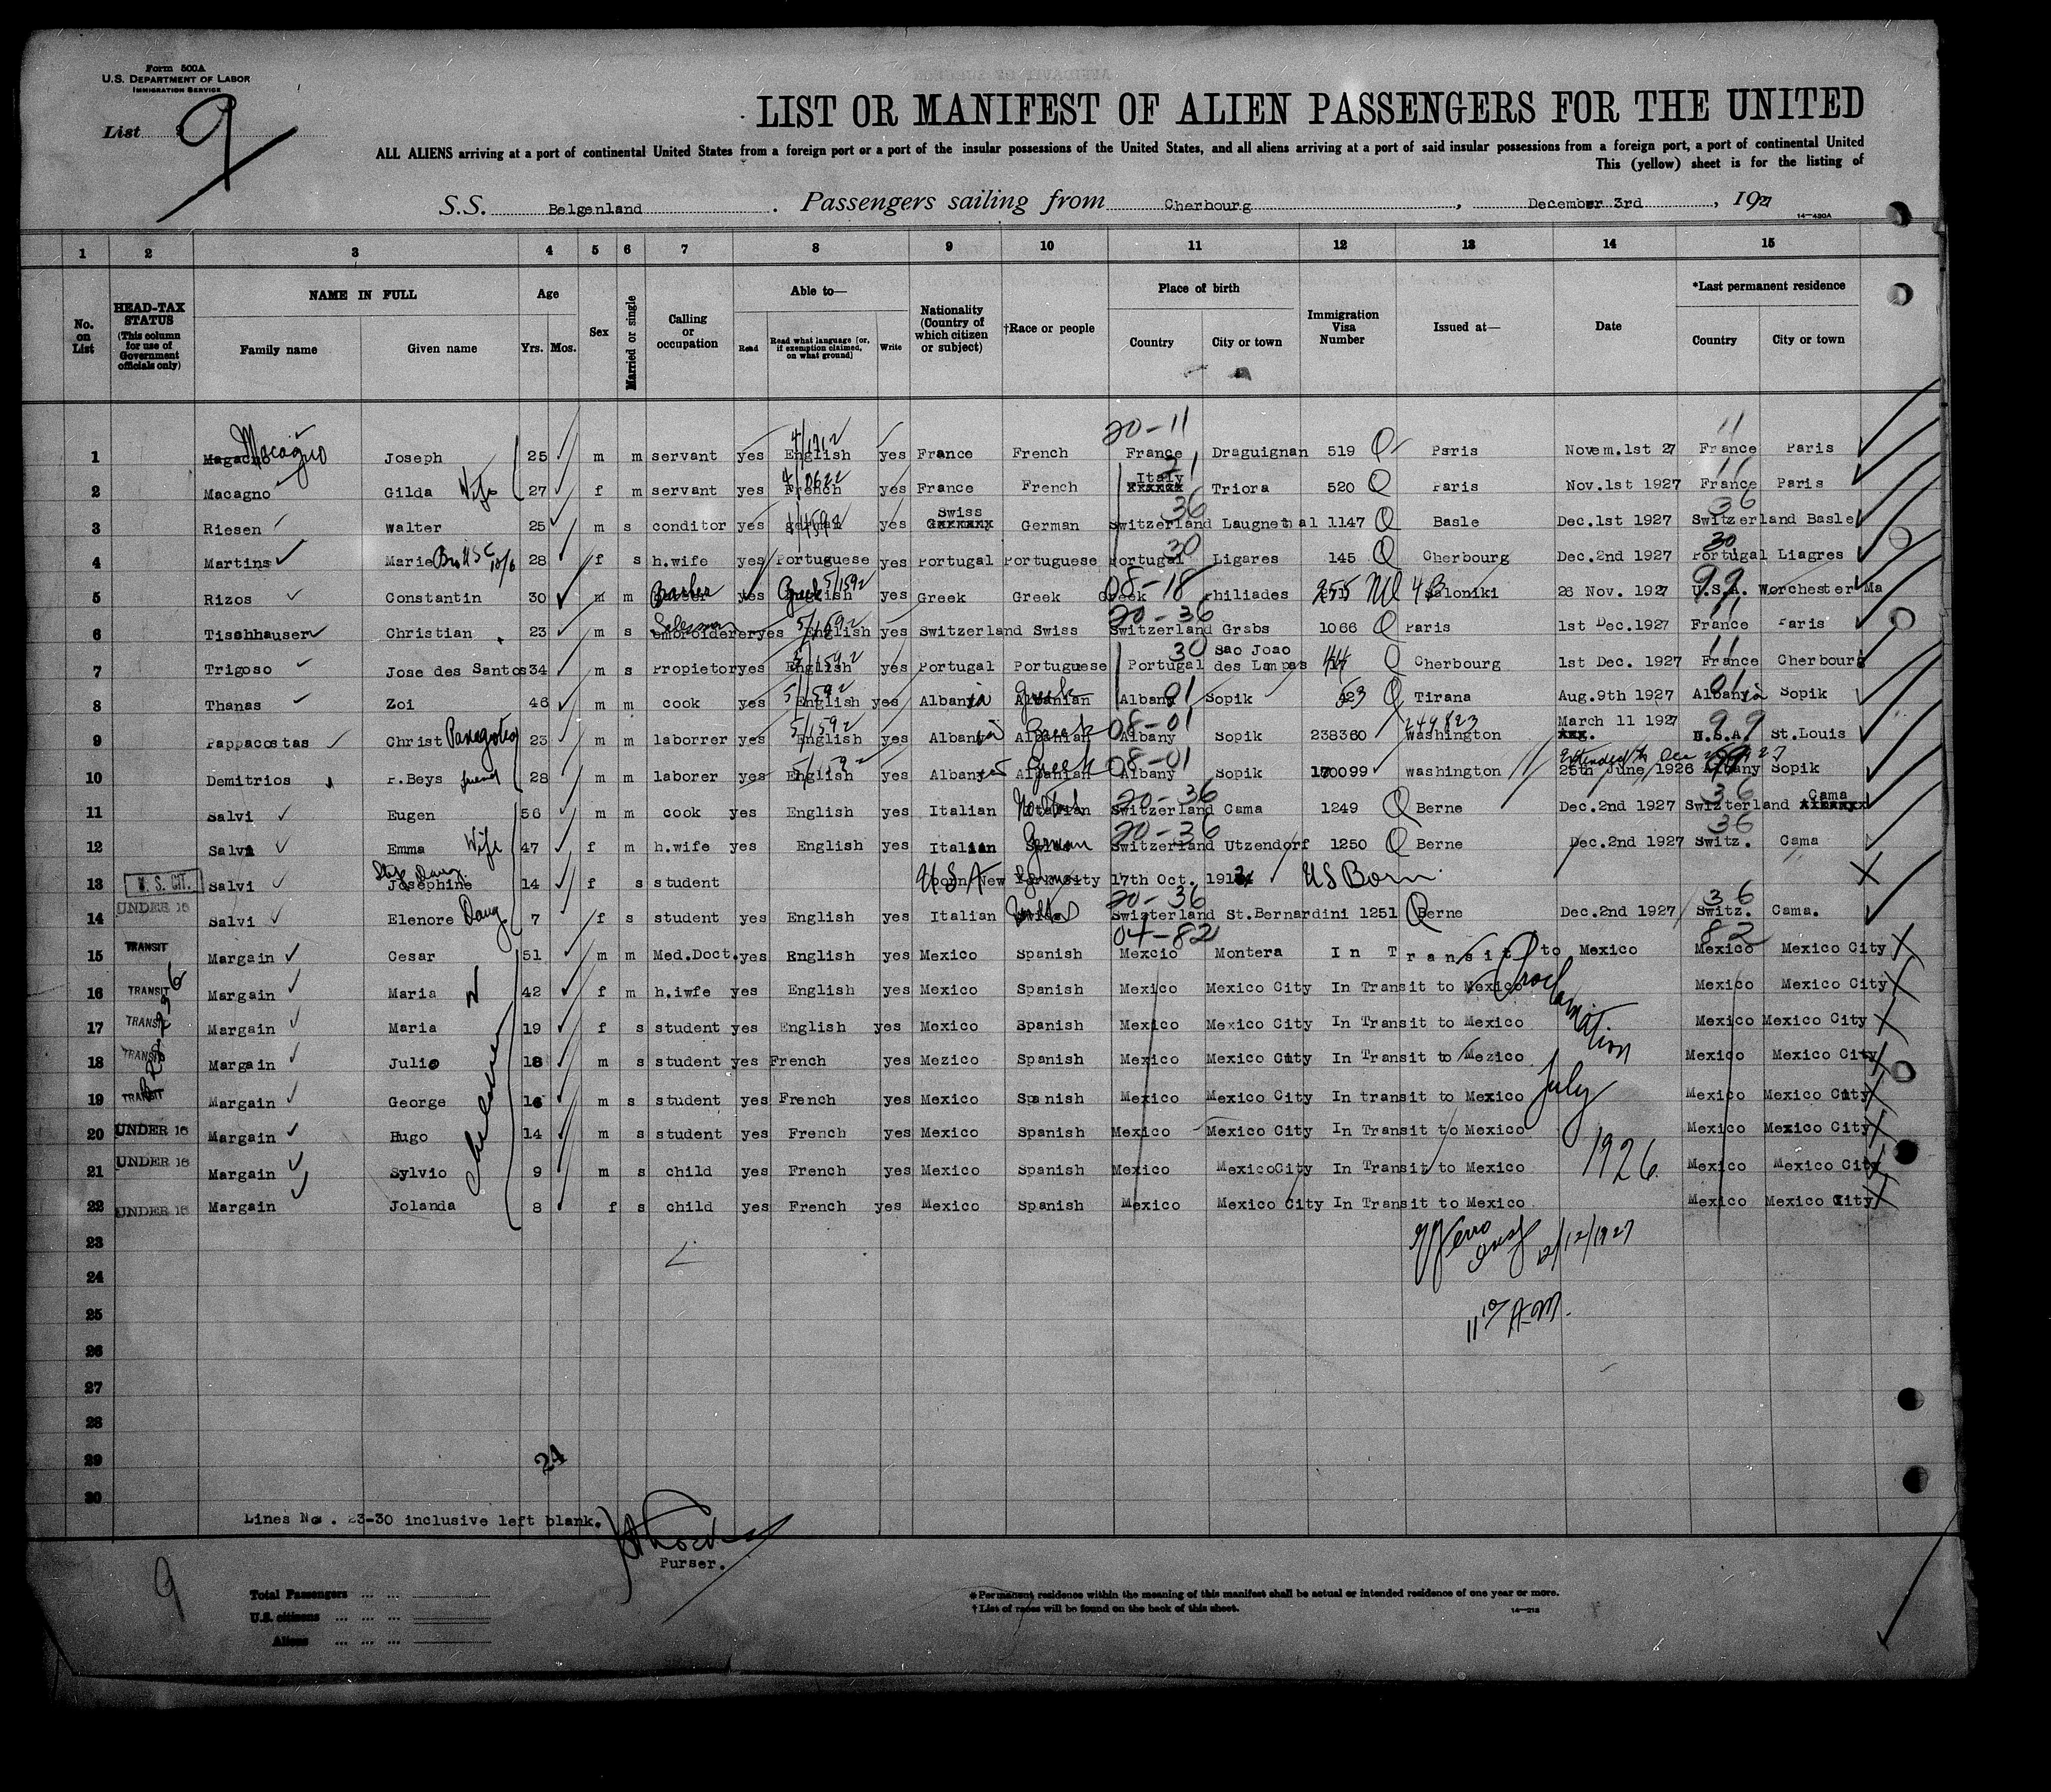 Form 500A
U.S. DEPARTMENT OF LABOR
IMMIGRATION SERVICE
List 9
LIST OR MANIFEST OF ALIEN PASSENGERS FOR THE UNITED
ALL ALIENS arriving at a port of continental United States from a foreign port or a port of the insular possessions of the United States, and all aliens arriving at a port of said insular possessions from a foreign port, a port of continental United
This (yellow) sheet is for the listing of
S.S. Belgenland. Passengers sailing from Cherbourg, December 3rd, 1927
14—430A
1 2 3 4 5 6 7 8 9 10 11 12 13 14 15
No. on List
HEAD-TAX STATUS (This column for use of Government officials only)
NAME IN FULL Family name Given name
Age Yrs. Mos.
Sex
Married or single
Calling or occupation
Able to— Read Read what language (or, if exemption claimed, on what ground) Write
Nationality (Country of which citizen or subject)
†Race or people
Place of birth Country City or town
Immigration Visa Number
Issued at—
Date
*Last permanent residence Country City or town
20-11 11
1 Magagno Macagno Joseph 25 m m servant yes English yes France French France Draguignan 519 Q Paris Novem.1st 27 France Paris
2 Macagno Gilda Wife 27 f m servant yes French yes France French Italy Triora 520 Q Paris Nov.1st 1927 France Paris
3 Riesen Walter 25 m s conditor yes german yes Swiss German Switzerland Laugnetnal 1147 Q Basle Dec.1st 1927 Switzerland Basle
4 Martins Marie 28 f s h.wife yes Portuguese yes Portugal Portuguese Portugal Ligares 145 Q Cherbourg Dec.2nd 1927 Portugal Liagres
5 Rizos Constantin 30 m m Barber yes Greek English yes Greek Greek Greek Philiades 255 Saloniki 26 Nov. 1927 U.S.A. Worchester Ma
6 Tischhauser Christian 23 m s Salesman emoroiderer yes English yes Switzerland Swiss Switzerland Grabs 1066 Q Paris 1st Dec.1927 France Paris
7 Trigoso Jose des Santos 34 m s Propietor yes English yes Portugal Portuguese Portugal Sao Joao des Lampas 44 Q Cherbourg 1st Dec. 1927 France Cherbourg
8 Thanas Zoi 46 m m cook yes English yes Albania Albanian Greek Albany Sopik 523 Q Tirana Aug.9th 1927 Albania Sopik
9 Pappacostas Christ Panagotes 23 m m laborrer yes English yes Albany Albanian Greek 08-01 Albany Sopik 238360 249823 Washington March 11 1927 U.S.A. St.Louis
10 Demitrios P.Beys friend 28 m m laborer yes English yes Albany Albanian Greek 08-01 Albany Sopik 170099 Washington 25th June 1926 Albany Sopik
11 Salvi Eugen 56 m m cook yes English yes Italian 20-36 Switzerland Cama 1249 Q Berne Dec.2nd 1927 36 Swizterland Cama
12 Salvi Emma Wife 47 f m h.wife yes English yes Italian German 20-36 Switzerland Utzendorf 1250 Q Berne Dec.2nd 1927 36 Switz. Cama
13 U.S. CIT. Salvi Josephine Step Daug. 14 f s student USA born New York city 17th Oct. 1913 US Born
14 UNDER 16 Salvi Elenore Daug 7 f s student yes English yes Italian 20-36 Swizterland St.Bernardini 1251 Q Berne Dec.2nd 1927 36 Switz. Cama.
04-82 82
15 TRANSIT Margain Cesar 51 m m Med.Doct. yes English yes Mexico Spanish Mexcio Montera In Transit to Mexico Mexico Mexico City
16 TRANSIT Margain Maria W 42 f m h.iwfe yes English yes Mexico Spanish Mexico Mexico City In Transit to Mexico Mexico Mexico City
17 TRANSIT Margain Maria 19 f s student yes English yes Mexico Spanish Mexico Mexico City In Transit to Mexico Mexico Mexico City
18 TRANSIT Margain Julio 18 m s student yes French yes Mezico Spanish Mexico Mexico City In Transit to Mezico Mexico Mexico City
19 TRANSIT Margain George 16 m s student yes French yes Mexico Spanish Mexico Mexico City In transit to Mexico Mexico Mexico City
20 UNDER 16 Margain Hugo 14 m s student yes French yes Mexico Spanish Mexico Mexico City In Transit to Mexico Mexico Mexico City
21 UNDER 16 Margain Sylvio 9 m s child yes French yes Mexico Spanish Mexico MexicoCity In Transit to Mexico Mexico Mexico City
22 UNDER 16 Margain Jolanda 8 f s child yes French yes Mexico Spanish Mexico Mexico City In Transit to Mexico Mexico Mexico City
children
Proclamation July 1926
23
12/12/1927
24
25
11 10 AM.
26
27
28
29
24
30
Lines No. 23-30 inclusive left blank.
Purser.
9
Total Passengers
U.S. citizens
Aliens
*Permanent residence within the meaning of this manifest shall be actual or intended residence of one year or more.
†List of races will be found on the back of this sheet.
14—218